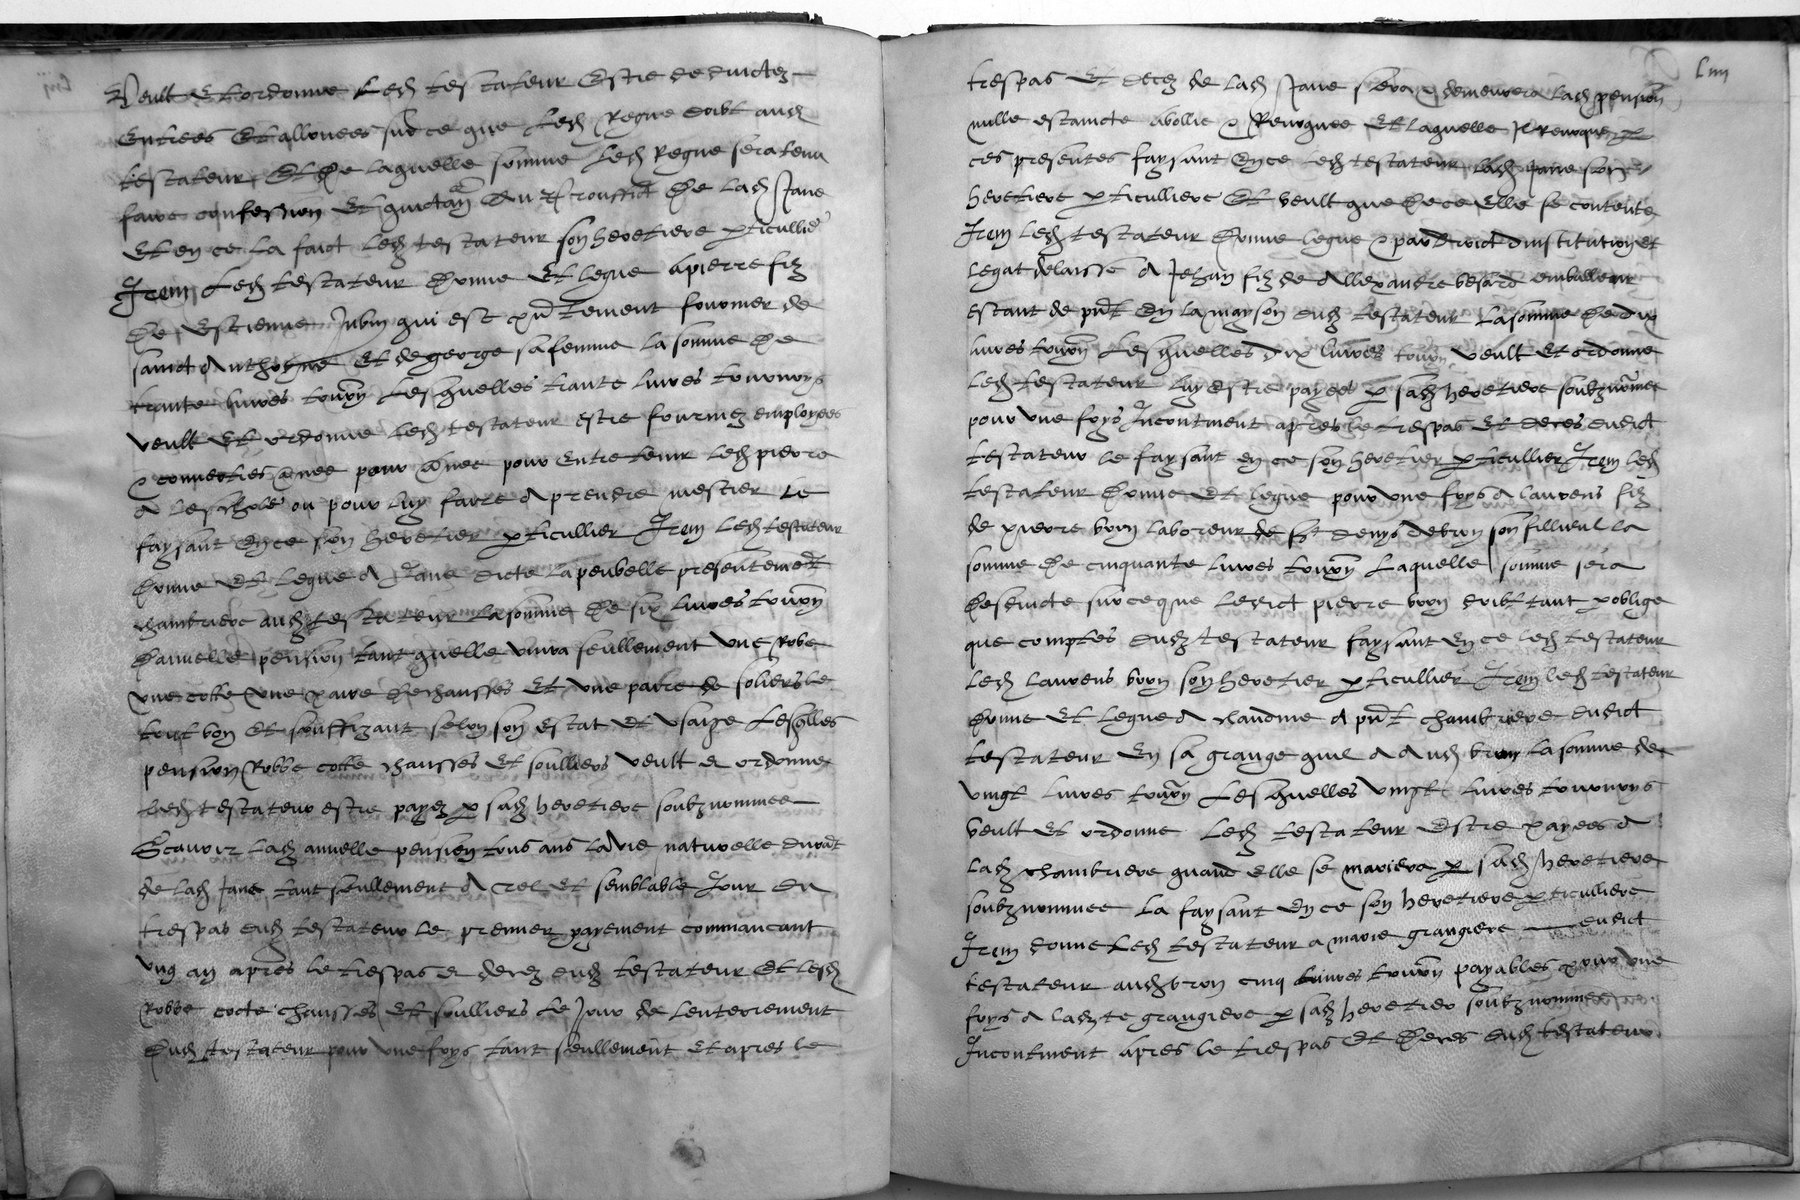 Veult et ordonne led testateur estre deduictez
entrees et allouees sur ce que led Regne doibt aud
testateur Et de laquelle somme led Regne sera tenu
faire confession et quictan au proffit de lad Jane
Et en ce la faict led testateur son heretiere pticulliere
Item led testateur donne et legue a pierre filz
de Estienne Jubin qui est pntement fournier de
sainct Anthoyne et de george sa femme la somme de
trante livres tourn Lesquelles trante livres tournoys
veult et ordonne led testateur estre fournies employees
& converties a pour entretenir led pierre
a leschole ou pour luy faire aprendre mestier Le
faysant en ce son heretier pticullier Item led testateur
donne et legue a Jane dicte la presentement
chambriere aud testateur la somme de six livres tourn
dannuelle pension tant quelle vivra seullement une Robe
une cotte une paire de chausses et une paire de soliers le
tout bon et souffizant selon son estat et usaige Lesqlles
pension Robbe cotte chausses et soulliers veult et ordonne
led testateur estre payez p sad heretiere soubznommee
Scavoir lad annuelle pension tous ans la vie naturelle durat
de lad Jane tant seullement a tel et semblable Jour du
trespas dud testateur le premier payement commancant
ung an apres le trespas et decez dud testateur et lesd
Robbe cotte chausses et soulliers le jour de lenterrement
dud testateur pour une foys tant seullement et apres le
Liiii
trespas et decez de lad Jane sera & demeurera lad pension
nulle estaincte abollie & Revoquee et laquelle Il revoque p
ces presentes faysant en ce led testateur lad Jane son
heretiere pticulliere Et veult que de ce elle se contente
Item led testateur donne legue & par droict dinstitution et
legat delaisse a Jehan filz de Allexandre besard emballeur
estant de pnt en la mayson dud testateur La somme de dix
livres tourn Lesquelles dix livres tourn veult et ordonne
led testateur luy estre payees p sad heretiere soubznommee
pour une foys Incontinent apres le trespas et deces dudict
testateur le faysant en ce son heretier pticullier Item led
testateur donne et legue pour une foys a laurens filz
de pierre born laboreur de st denys de bron son fillieul la
somme de cinquante livres tourn Laquelle somme sera
desduicte sur ce que ledict pierre born doibt tant p oblige
que comptes dudz testateur faysant en ce led testateur
led laurens born son heretier pticullier Item led testateur
donne et legue a claudine a pnt chambriere dudict
testateur en sa grange quil a aud bron la somme de
vingt livres tourn Lesquelles vingt livres tournoys
veult et ordonne led testateur estre payees a
lad chambriere quand elle se mariera p sad heretiere
soubznommee la faysant en ce son heretiere pticulliere
Item donne led testateur a marie grangiere dudict
testateur aud bron cinq livres tourn payables pour une
foys a ladte grangiere p sad heretiere soubznommee
Incontinent apres le trespas et deces dud testateur